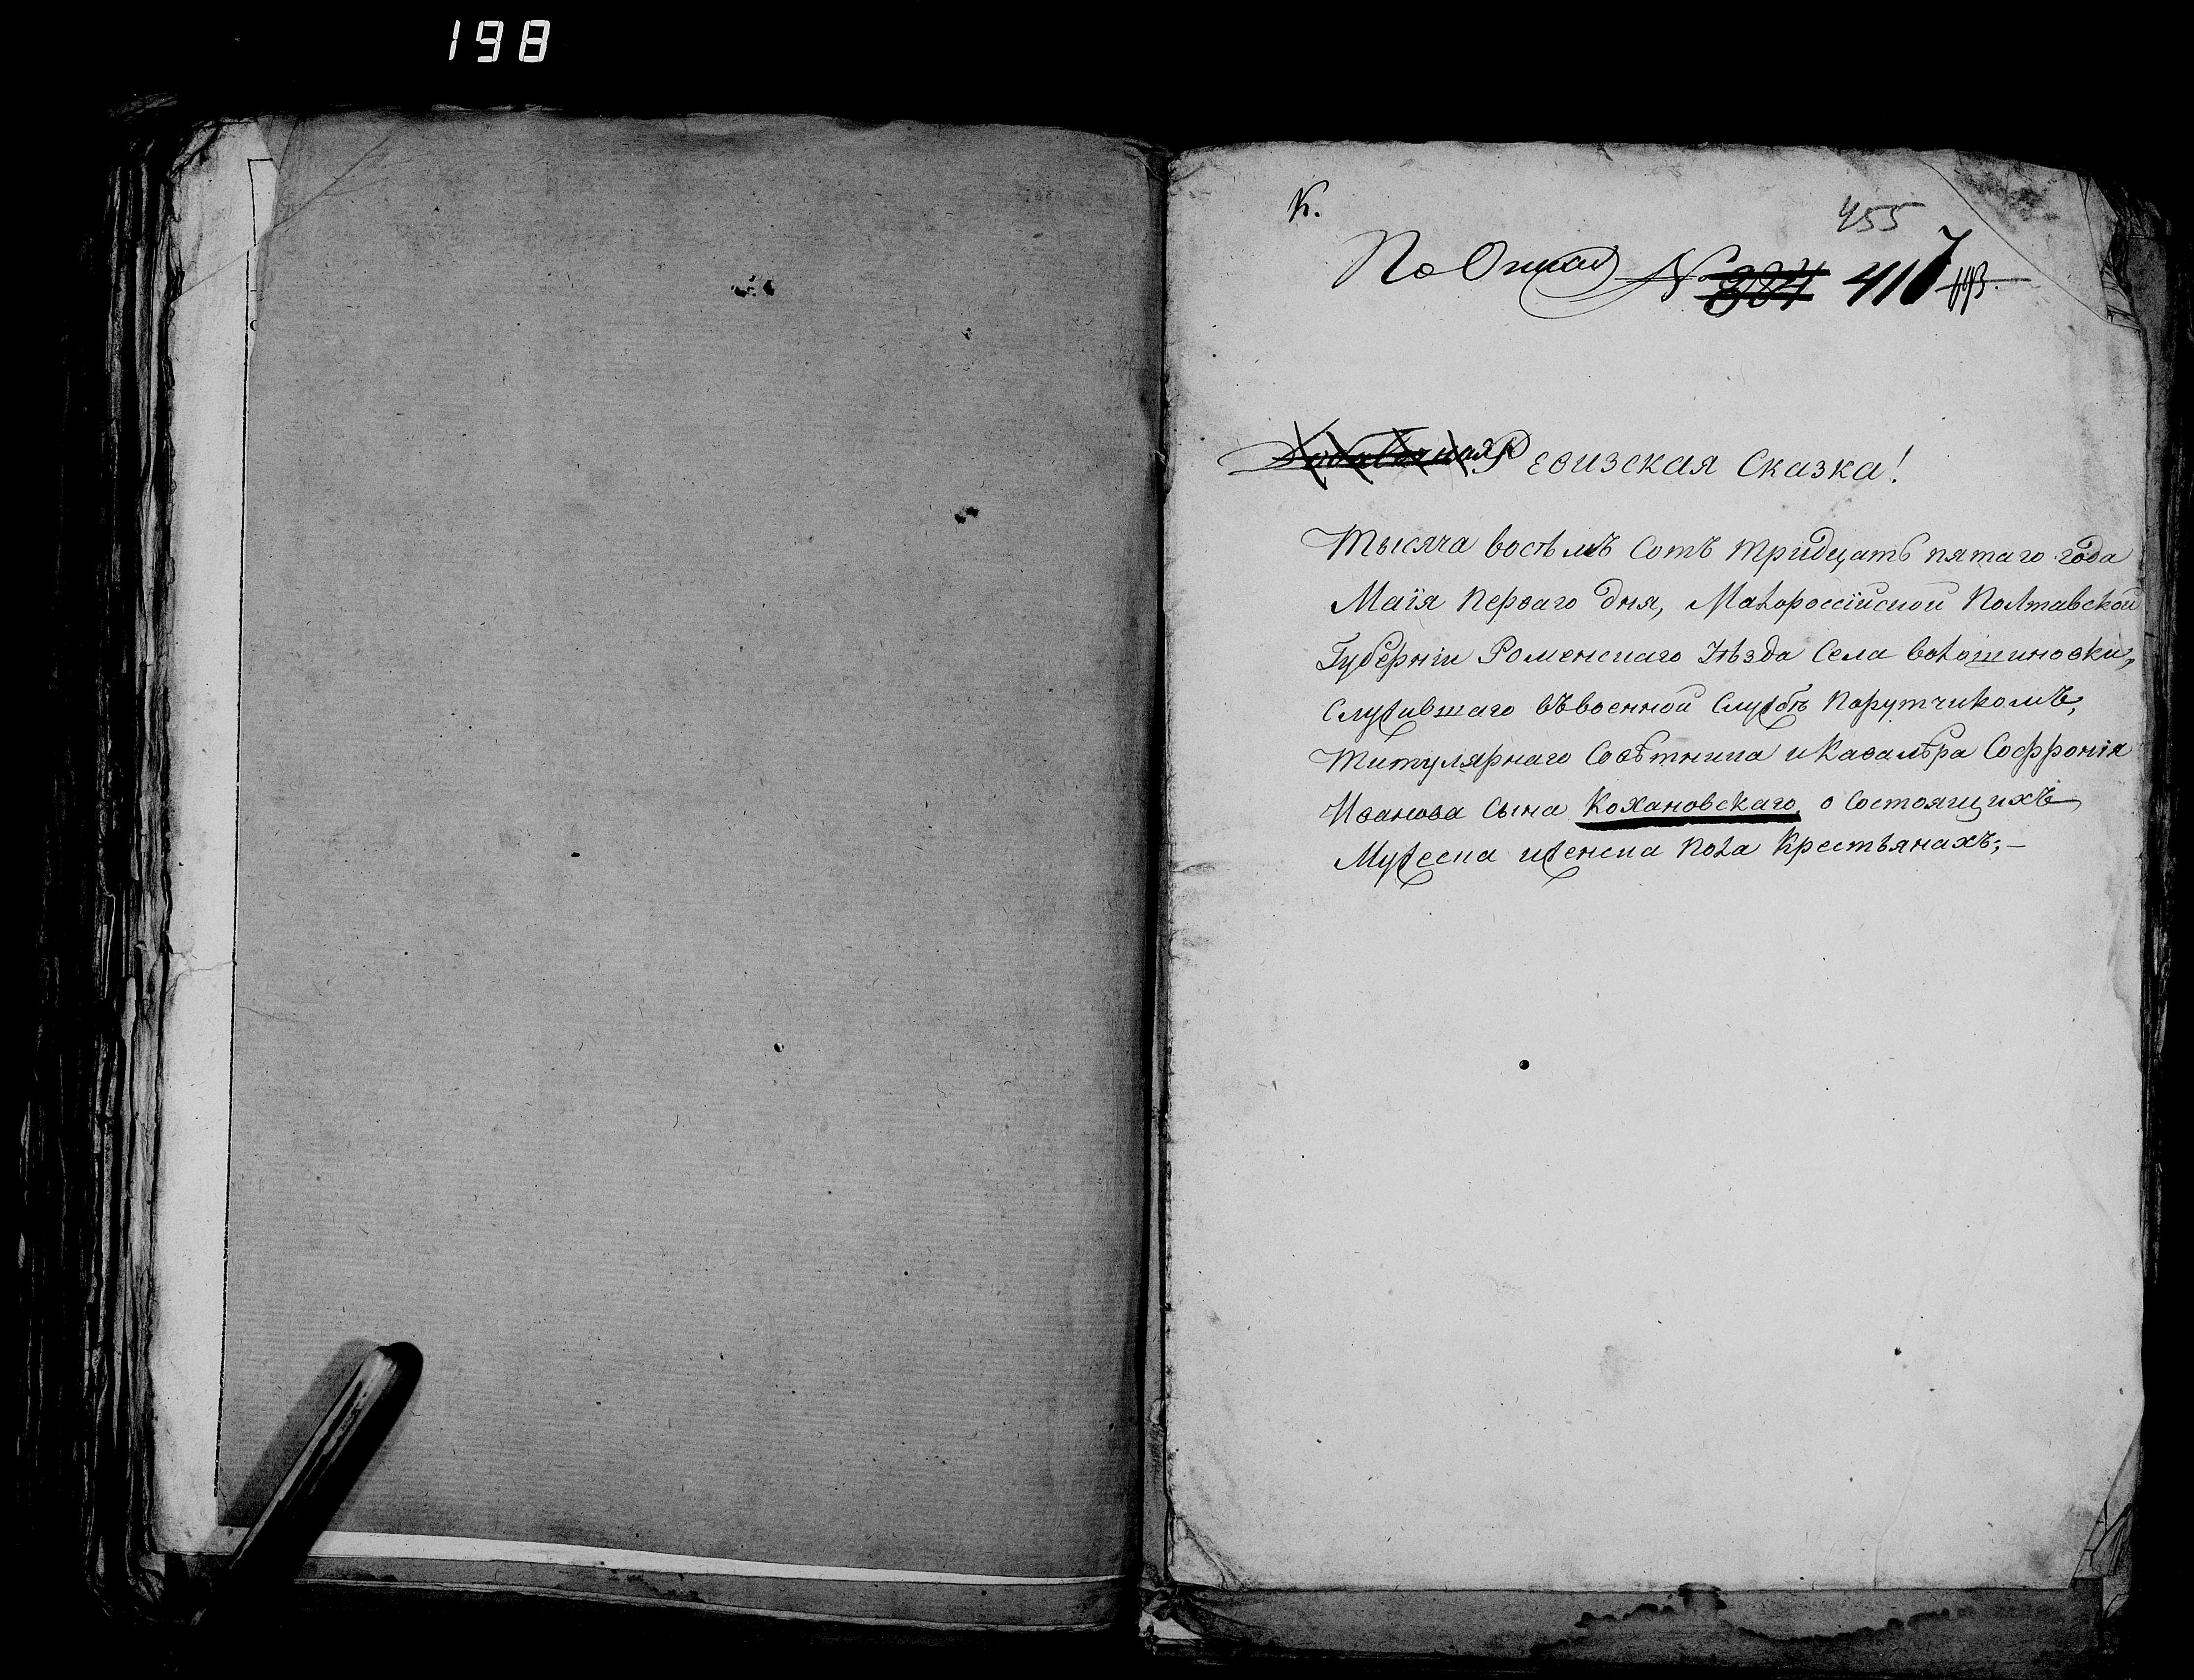 198
К.
455
По Описи № 384 417
Ревизская Сказка!
Тысяча востьмъ Сотъ тридцать пятаго года
Маія Перваго дня, Малороссійской Полтавской
Губерніи Роменскаго Уѣзда Села Волошиновки,
Служившаго въ военной Службѣ Порутчикомъ,
Титулярнаго Совѣтника и Кавалѣра Софронія
Иванова Сына Кохановскаго, о Состоящихъ
Мужеска и женска Пола Крестьянахъ;—